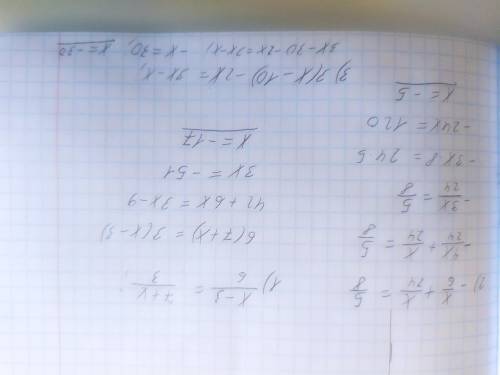 1) \frac{x-3}{6} = \frac{7+x}{3};
6(7+x) = 3(x-3)
42+6x = 3x-9
3x = -51
x = -17
2) -\frac{x}{6} + \frac{x}{24} = \frac{5}{8}
-\frac{4x}{24} + \frac{x}{24} = \frac{5}{8}
-\frac{3x}{24} = \frac{5}{8}
-3x 8 = 24 5
-24x = 120
x = -5
3) 3(x-10)-2x = 3x-x;
3x-30-2x=3x-x; -x=30; x=-30